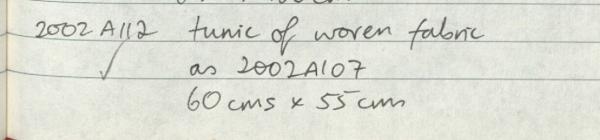 2002 A112 tunic of woven fabric
✓ as 2002A107
60 cms x 55 cm